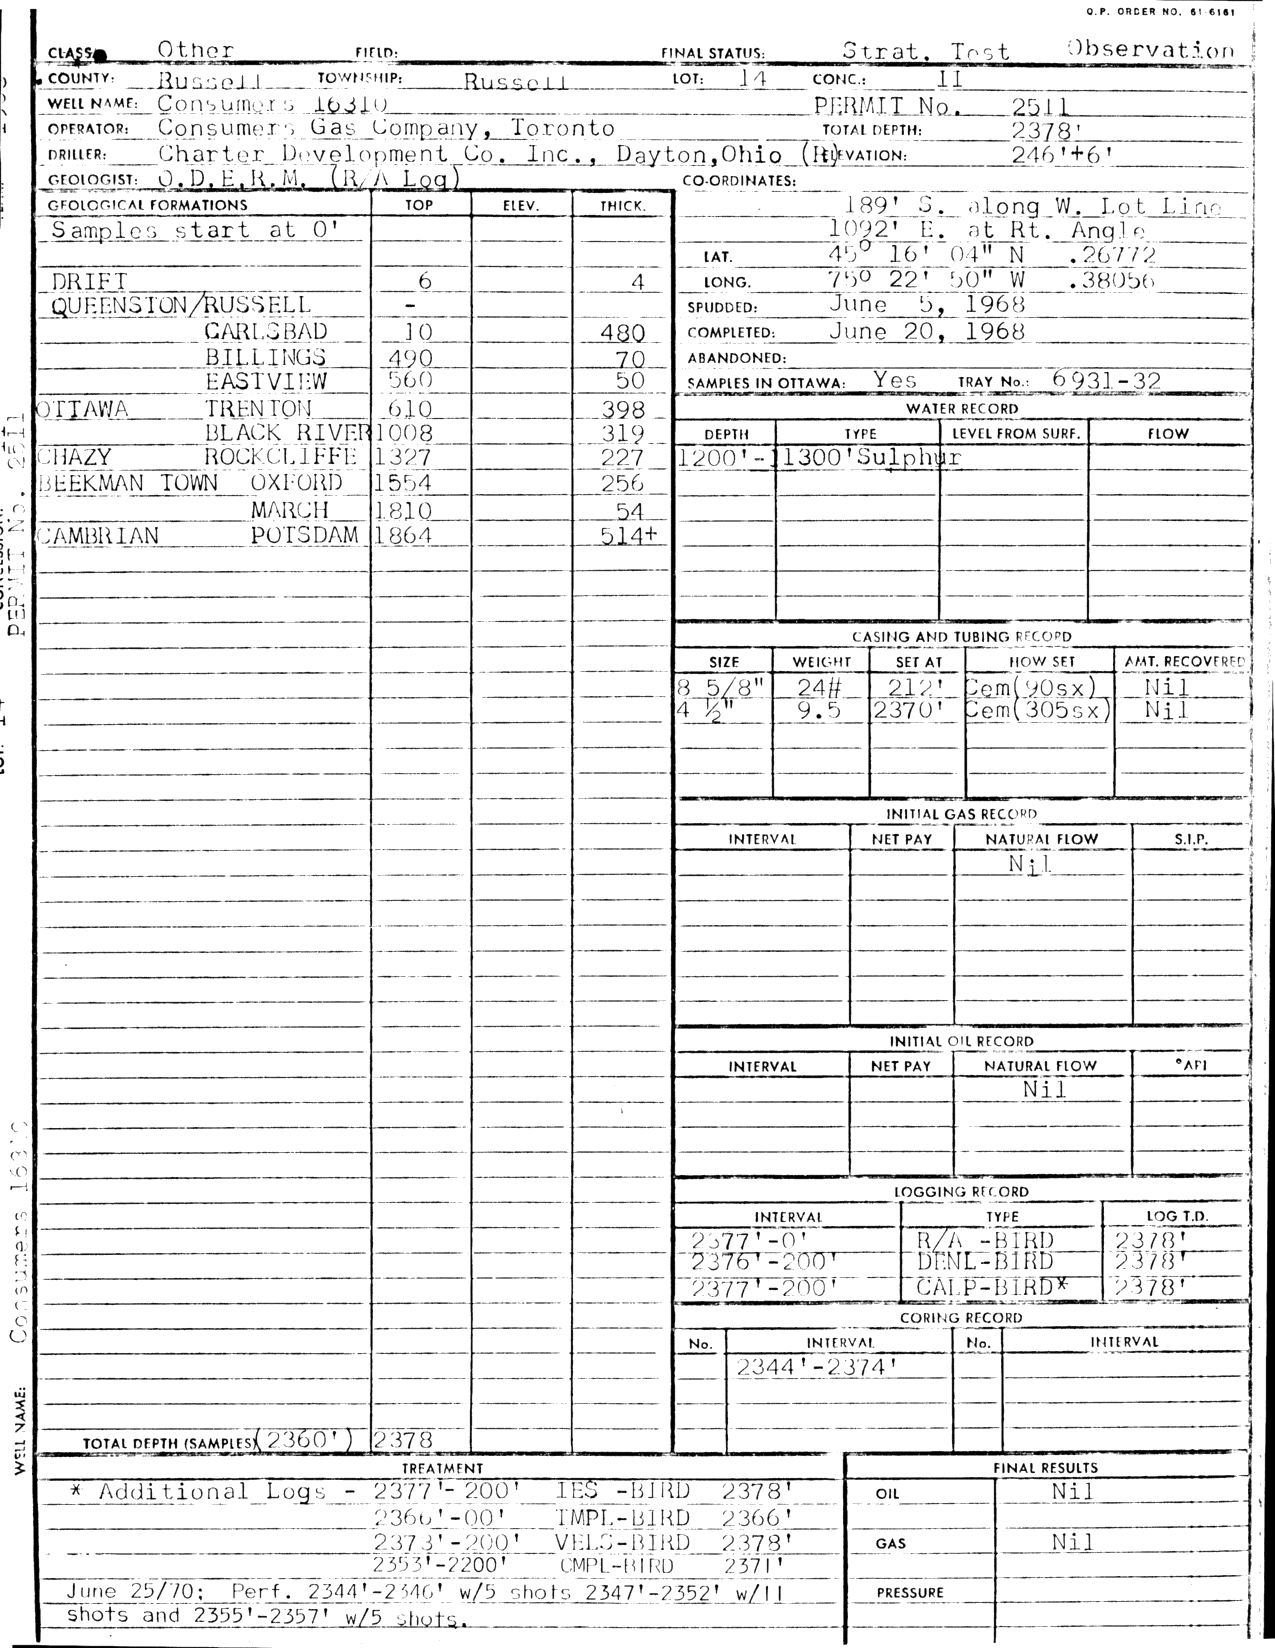 O.P. ORDER NO. 61-6161
CLASS Other FIELD: FINAL STATUS: Strat. Test Observation
COUNTY: Russell TOWNSHIP: Russell LOT: 14 CONC.: II
WELL NAME: Consumers 16310 PERMIT No. 2511
OPERATOR: Consumers Gas Company, Toronto TOTAL DEPTH: 2378'
DRILLER: Charter Development Co. Inc., Dayton,Ohio ELEVATION: 246'+6'
GEOLOGIST: O.D.E.R.M. (R/A Log) CO-ORDINATES:
189' S. along W. Lot Line
1092' E. at Rt. Angle
LAT. 45º 16' 04" N .26772
LONG. 75º 22' 50" W .38056
SPUDDED: June 5, 1968
COMPLETED: June 20, 1968
ABANDONED:
SAMPLES IN OTTAWA: Yes TRAY No.: 6931-32
GEOLOGICAL FORMATIONS TOP ELEV. THICK.
Samples start at 0'
DRIFT 6 4
QUEENSTON/RUSSELL -
CARLSBAD 10 480
BILLINGS 490 70
EASTVIEW 560 50
OTTAWA TRENTON 610 398
BLACK RIVER 1008 319
CHAZY ROCKCLIFFE 1327 227
BEEKMAN TOWN OXFORD 1554 256
MARCH 1810 54
CAMBRIAN POTSDAM 1864 514+
TOTAL DEPTH (SAMPLES) (2360') 2378
WATER RECORD
DEPTH TYPE LEVEL FROM SURF. FLOW
1200'-1300' Sulphur
CASING AND TUBING RECORD
SIZE WEIGHT SET AT HOW SET AMT. RECOVERED
8 5/8" 24# 212' Cem(90sx) Nil
4 ½" 9.5 2370' Cem(305sx) Nil
INITIAL GAS RECORD
INTERVAL NET PAY NATURAL FLOW S.I.P.
Nil
INITIAL OIL RECORD
INTERVAL NET PAY NATURAL FLOW °API
Nil
LOGGING RECORD
INTERVAL TYPE LOG T.D.
2377'-0' R/A -BIRD 2378'
2376'-200' DENL-BIRD 2378'
2377'-200' CALP-BIRD* 2378'
CORING RECORD
No. INTERVAL No. INTERVAL
2344'-2374'
TREATMENT
* Additional Logs - 2377'-200' IES -BIRD 2378'
2366'-00' TMPL-BIRD 2366'
2373'-200' VELS-BIRD 2378'
2353'-2200' CMPL-BIRD 2371'
June 25/70; Perf. 2344'-2346' w/5 shots 2347'-2352' w/11
shots and 2355'-2357' w/5 shots.
FINAL RESULTS
OIL Nil
GAS Nil
PRESSURE
PERMIT No. 2511
LOT: 14
WELL NAME: Consumers 16310